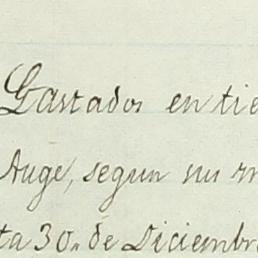 Gastados en tie
Auge, segun sus
ta 30. de Diciembr